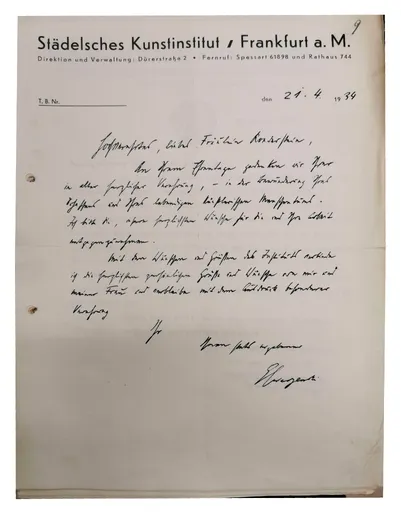 9
Städelsches Kunstinstitut / Frankfurt a. M.
Direktion und Verwaltung: Dürerstraße 2 • Fernruf: Spessart 61898 und Rathaus 744
T. B. Nr.
den 21.4. 1934
liebes Fräulein Roederstein,
An Ihrem Ehrentage gedenken wir Ihrer
in aller herzlicher Verehrung, – in der Bewunderung Ihres
Schaffens und Ihres lebendigen Menschentums.
herzlichsten Wünsche für Sie und Ihre Arbeit
entgegenzunehmen.
Mit den Wünschen und Grüßen des Instituts verbinde
ich die herzlichsten persönlichen Grüße und Wünsche von mir und
meiner Frau und verbleibe mit dem Ausdruck besonderer
Verehrung
Ihr
Ihnen stets ergebener